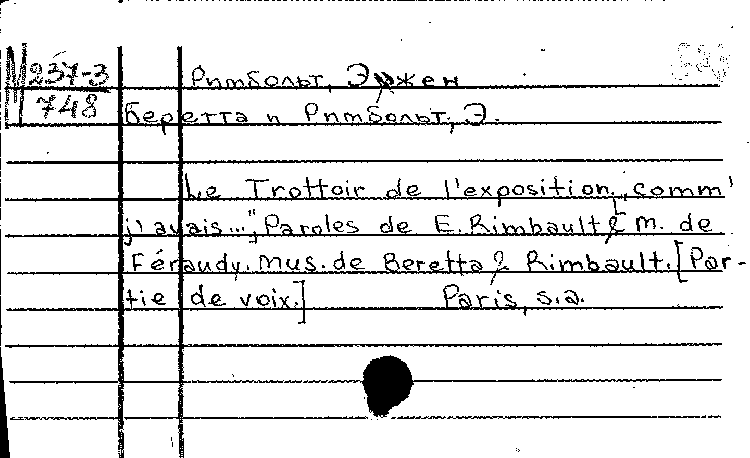 М 237-3
748
Римбольт, Эжен
Беретта и Римбольт, Э.
Le Trottoir de l'exposition. „Comm'
j'avais...", Paroles de E. Rimbault & M. de
Féraudy. Mus. de Beretta & Rimbault. [Par-
tie de voix.] Paris, s.a.